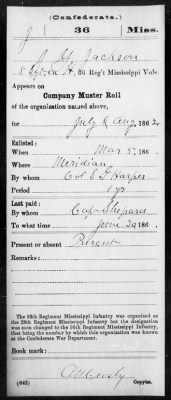 (Confederate.)
J 36 Miss.
J Y Jackson
5 Sgt, Co H, 36 Reg't Mississippi Vols.
Appears on
Company Muster Roll
of the organization named above,
for July & Aug, 1862.
Enlisted:
When Mar 5, 186 .
Where Meridian
By whom Col S G Harper
Period 1 yr
Last paid:
By whom Capt Shepard
To what time June 30, 186 .
Present or absent Present
Remarks:
The 36th Regiment Mississippi Infantry was organized as the
Regiment Mississippi Infantry but the designation
was soon changed to the 36th Regiment Mississippi Infantry,
that being the number by which this organization was known
at the Confederate War Department.
Book mark:
(642)
Copyist.